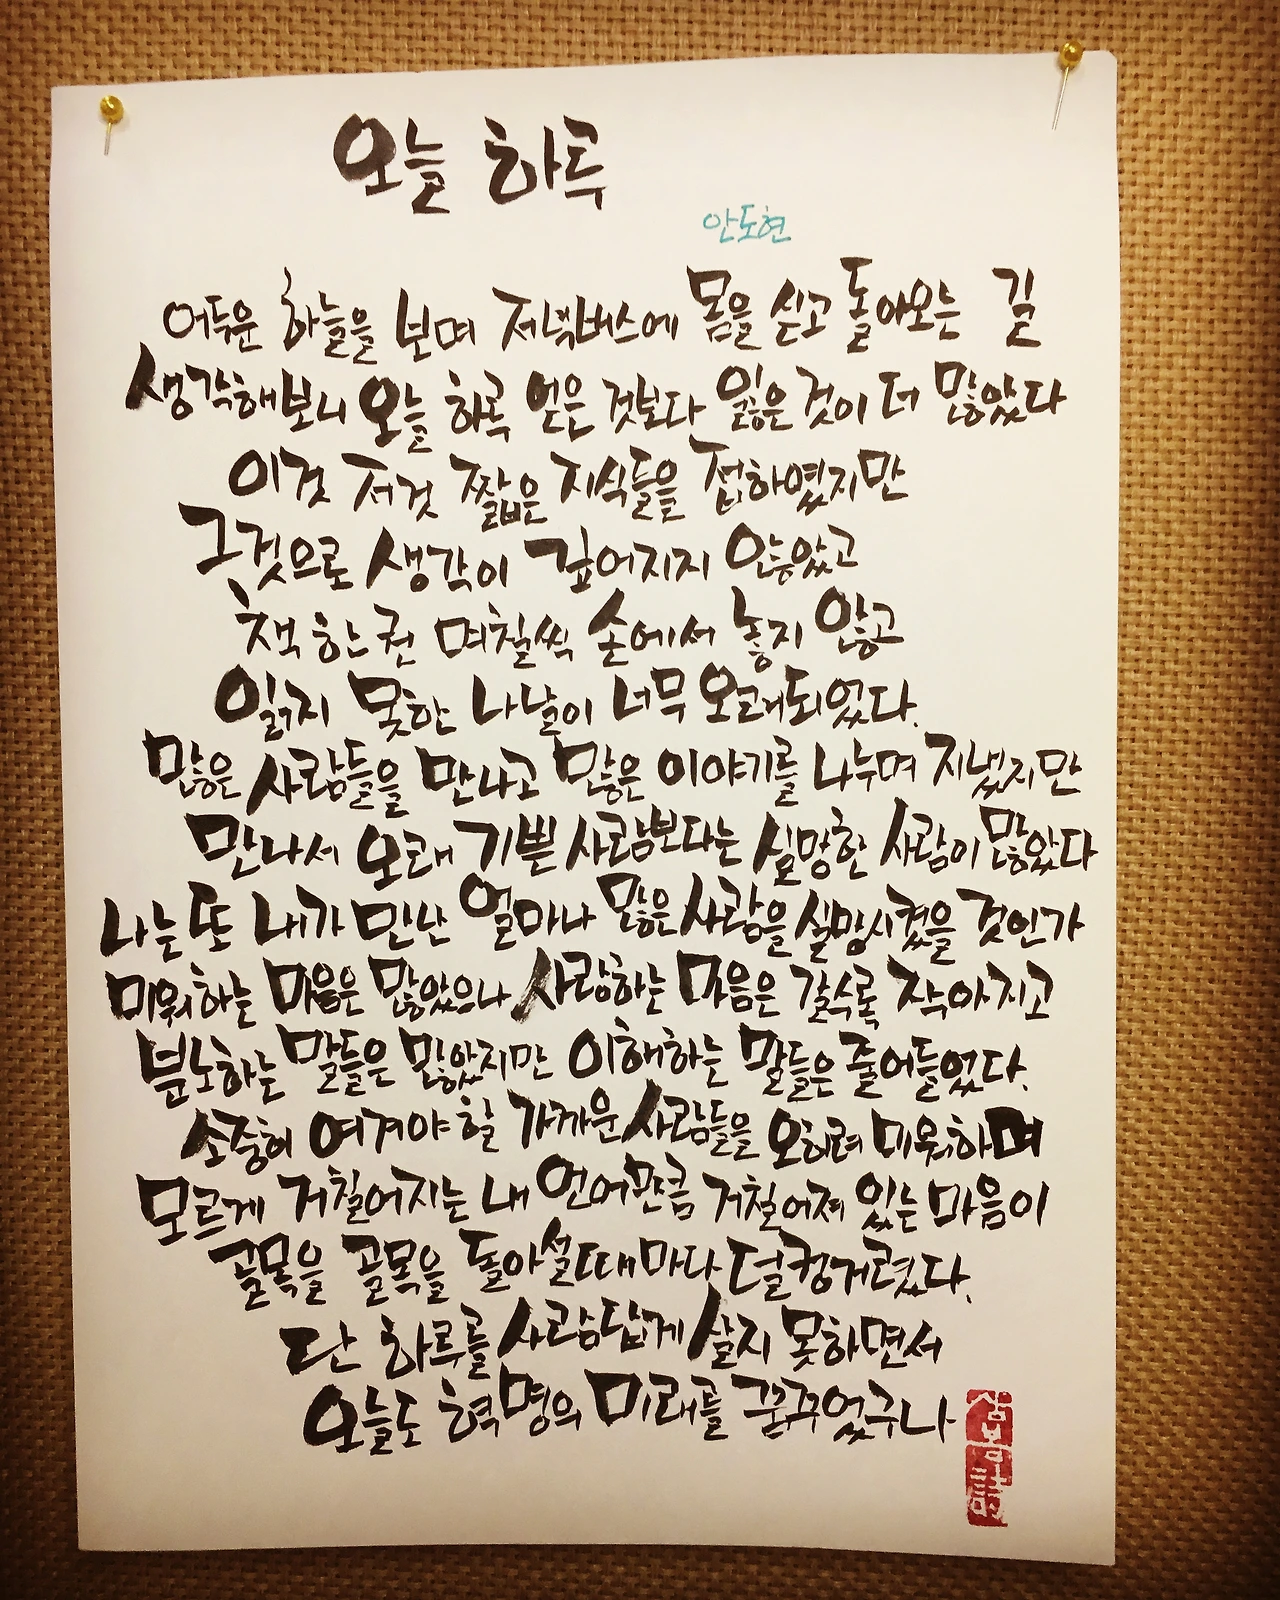 오늘 하루
안도현
어두운 하늘을 보며 저녁버스에 몸을 싣고 돌아오는 길
생각해보니 오늘 하루 얻은 것보다 잃은 것이 더 많았다
이것 저것 짧은 지식들을 접하였지만
그것으로 생각이 깊어지지 않았고
책 한 권 며칠씩 손에서 놓지 않고
읽지 못한 나날이 너무 오래되었다.
많은 사람들을 만나고 많은 이야기를 나누며 지냈지만
만나서 오래 기쁜 사람보다는 실망한 사람이 많았다
나는 또 내가 만난 얼마나 많은 사람을 실망시켰을 것인가
미워하는 마음은 많았으나 사랑하는 마음은 갈수록 작아지고
분노하는 말들은 많았지만 이해하는 말들은 줄어들었다.
소중히 여겨야 할 가까운 사람들을 오히려 미워하며
모르게 거칠어지는 내 언어만큼 거칠어져 있는 마음이
골목을 골목을 돌아설때마다 덜컹거렸다.
단 하루를 사람답게 살지 못하면서
오늘도 혁명의 미래를 꿈꾸었구나